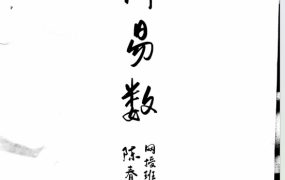 易数
网授班
陈春